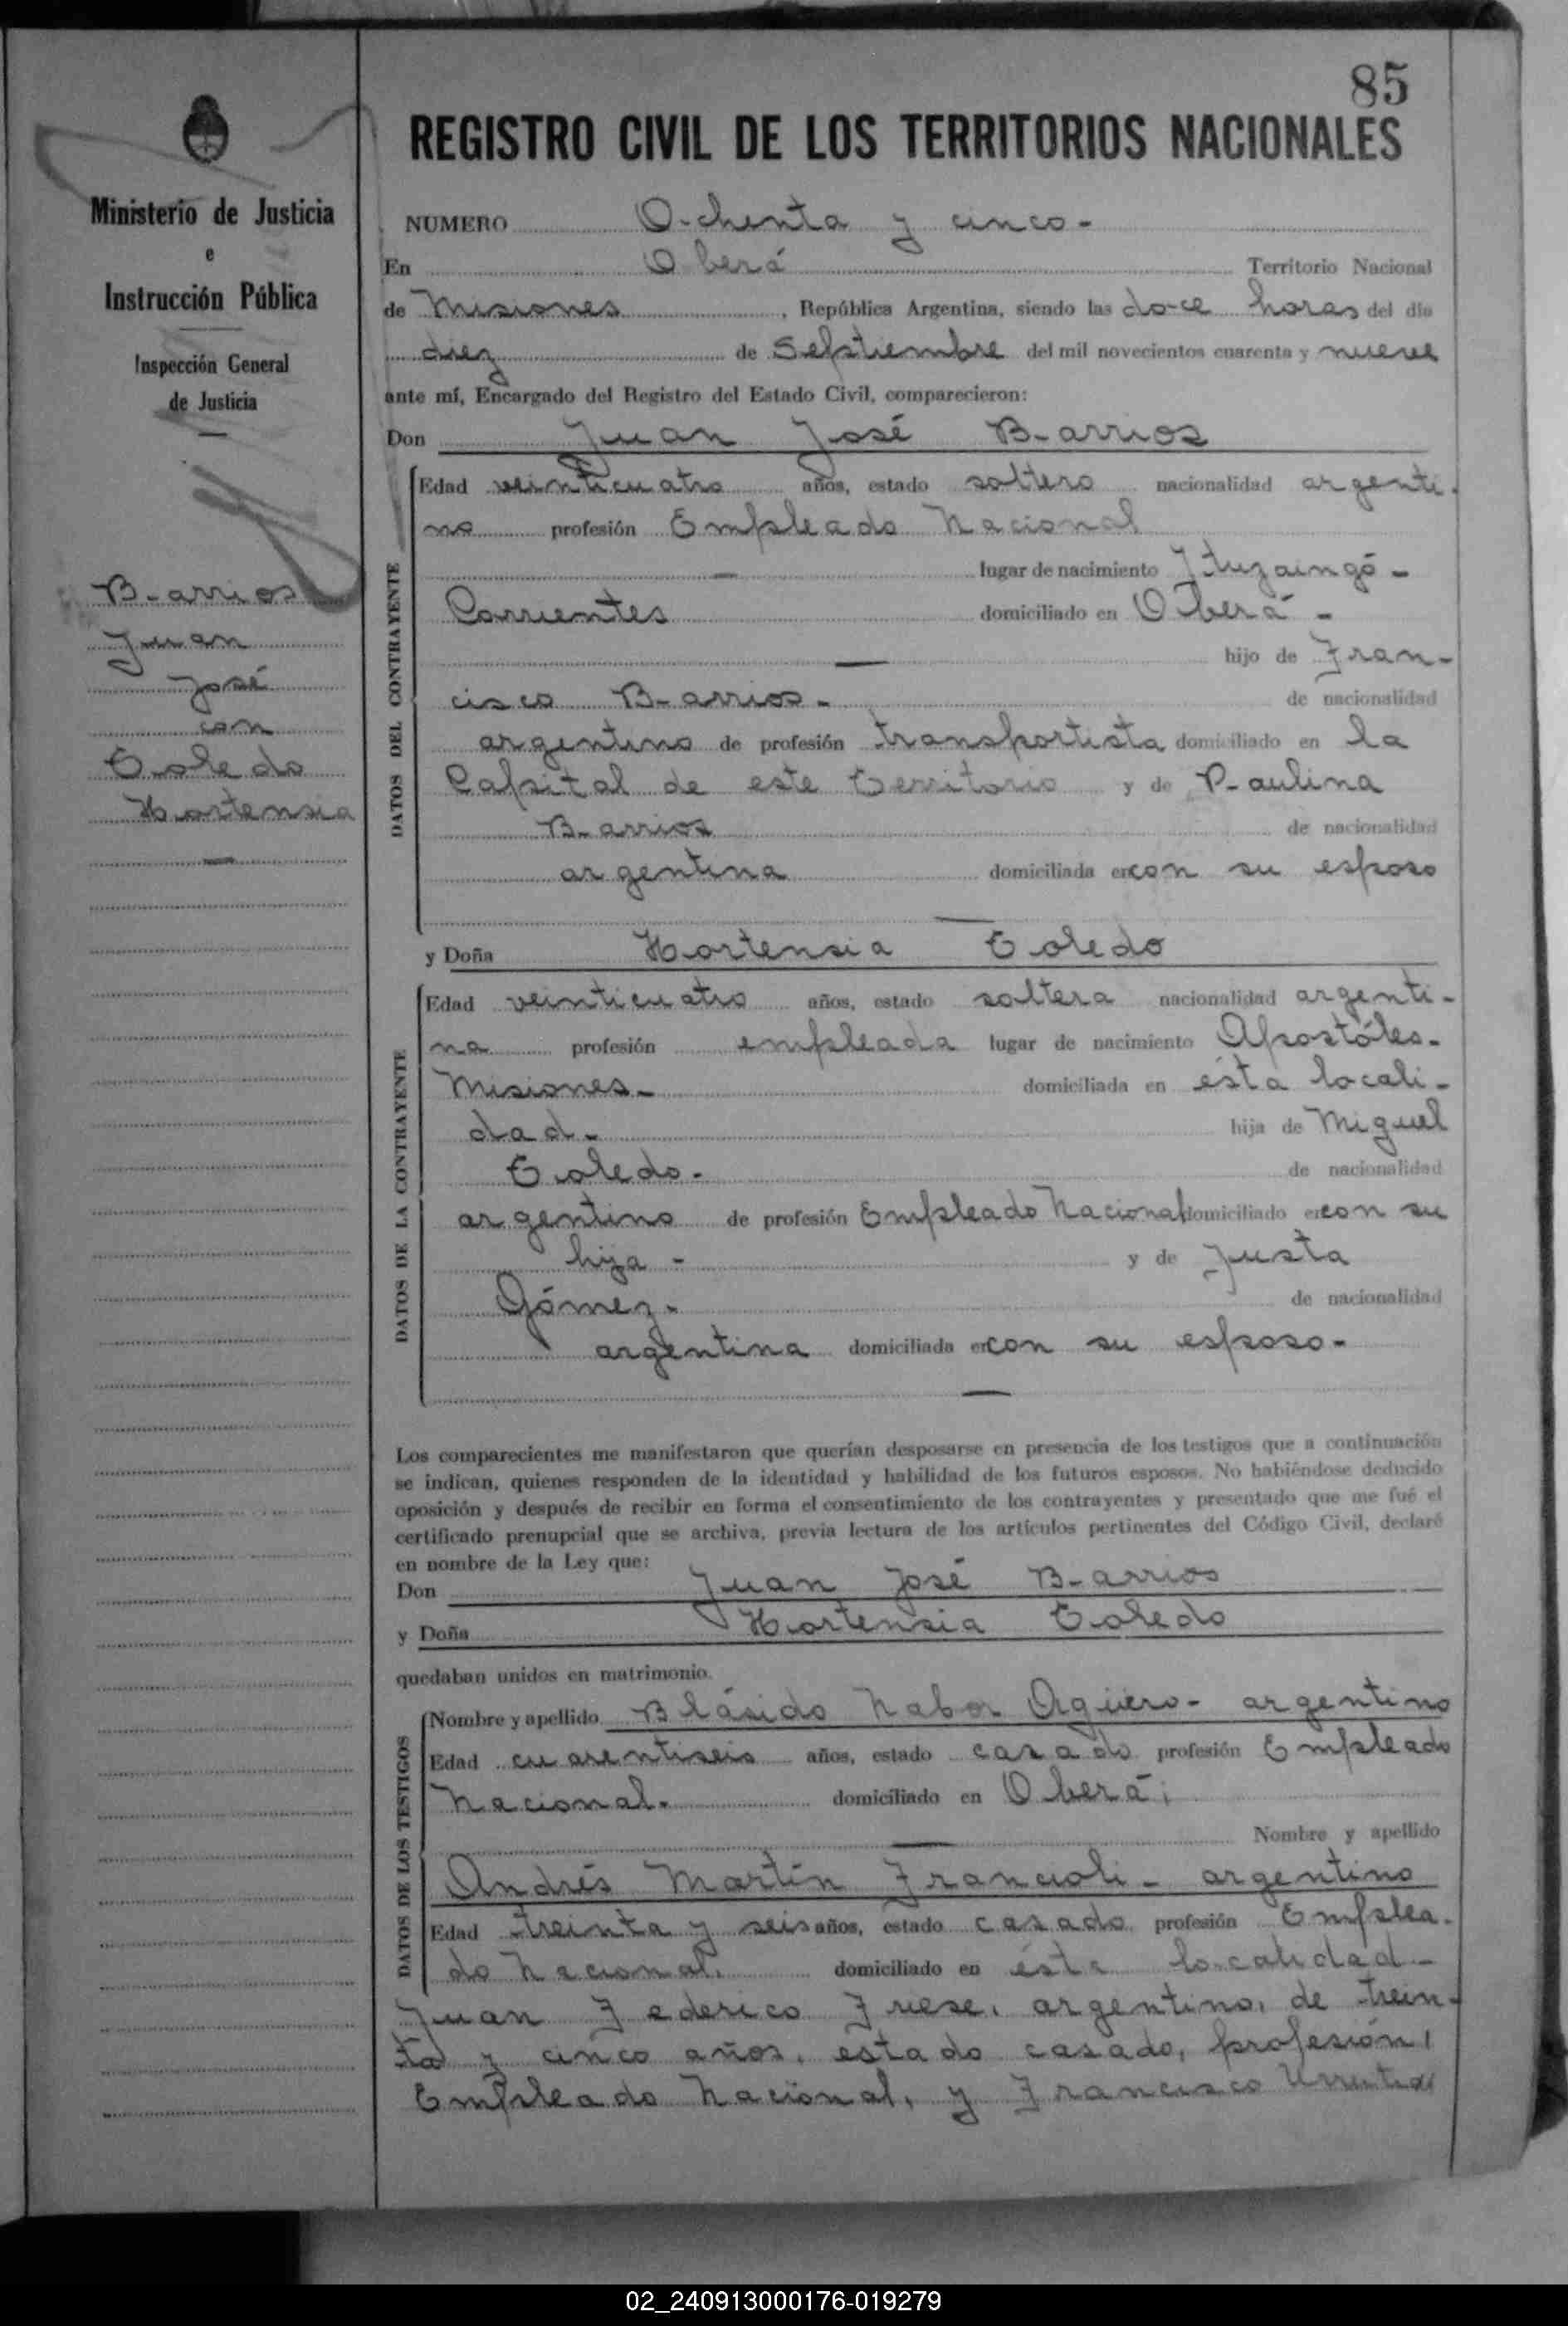 85
REGISTRO CIVIL DE LOS TERRITORIOS NACIONALES
Ministerio de Justicia
e
Instrucción Pública
Inspección General
de Justicia
Barrios
Juan
José
con
Toledo
Hortensia
NUMERO Ochenta y cinco-
En Oberá Territorio Nacional
de Misiones, República Argentina, siendo las doce horas del día
diez de Septiembre del mil novecientos cuarenta y nueve
ante mí, Encargado del Registro del Estado Civil, comparecieron:
Don Juan José Barrios
DATOS DEL CONTRAYENTE
Edad veinticuatro años, estado soltero nacionalidad argenti-
no profesión Empleado Nacional
— lugar de nacimiento Ituzaingó-
Corrientes domiciliado en Oberá-
— hijo de Fran-
cisco Barrios- de nacionalidad
argentino de profesión transportista domiciliado en la
Capital de este Territorio y de Paulina
Barrios de nacionalidad
argentina domiciliada en con su esposo
—
y Doña Hortensia Toledo
DATOS DE LA CONTRAYENTE
Edad veinticuatro años, estado soltera nacionalidad argenti-
na profesión empleada lugar de nacimiento Apostóles-
Misiones- domiciliada en ésta locali-
dad- hija de Miguel
Toledo- de nacionalidad
argentino de profesión Empleado Nacional domiciliado en con su
hija - y de Justa
Gómez- de nacionalidad
argentina domiciliada en con su esposo-
—
Los comparecientes me manifestaron que querían desposarse en presencia de los testigos que a continuación
se indican, quienes responden de la identidad y habilidad de los futuros esposos. No habiéndose deducido
oposición y después de recibir en forma el consentimiento de los contrayentes y presentado que me fué el
certificado prenupcial que se archiva, previa lectura de los artículos pertinentes del Código Civil, declaré
en nombre de la Ley que:
Don Juan José Barrios
y Doña Hortensia Toledo
quedaban unidos en matrimonio.
DATOS DE LOS TESTIGOS
Nombre y apellido Blásido Nabor Agüero- argentino
Edad cuarentiseis años, estado casado profesión Empleado
Nacional- domiciliado en Oberá;
— Nombre y apellido
Andrés Martín Francioli- argentino
Edad treinta y seis años, estado casado profesión Emplea-
do Nacional, domiciliado en ésta localidad-
Juan Federico Friese, argentino, de trein-
ta y cinco años, estado casado, profesión,
Empleado Nacional, y Francisco
02_240913000176-019279